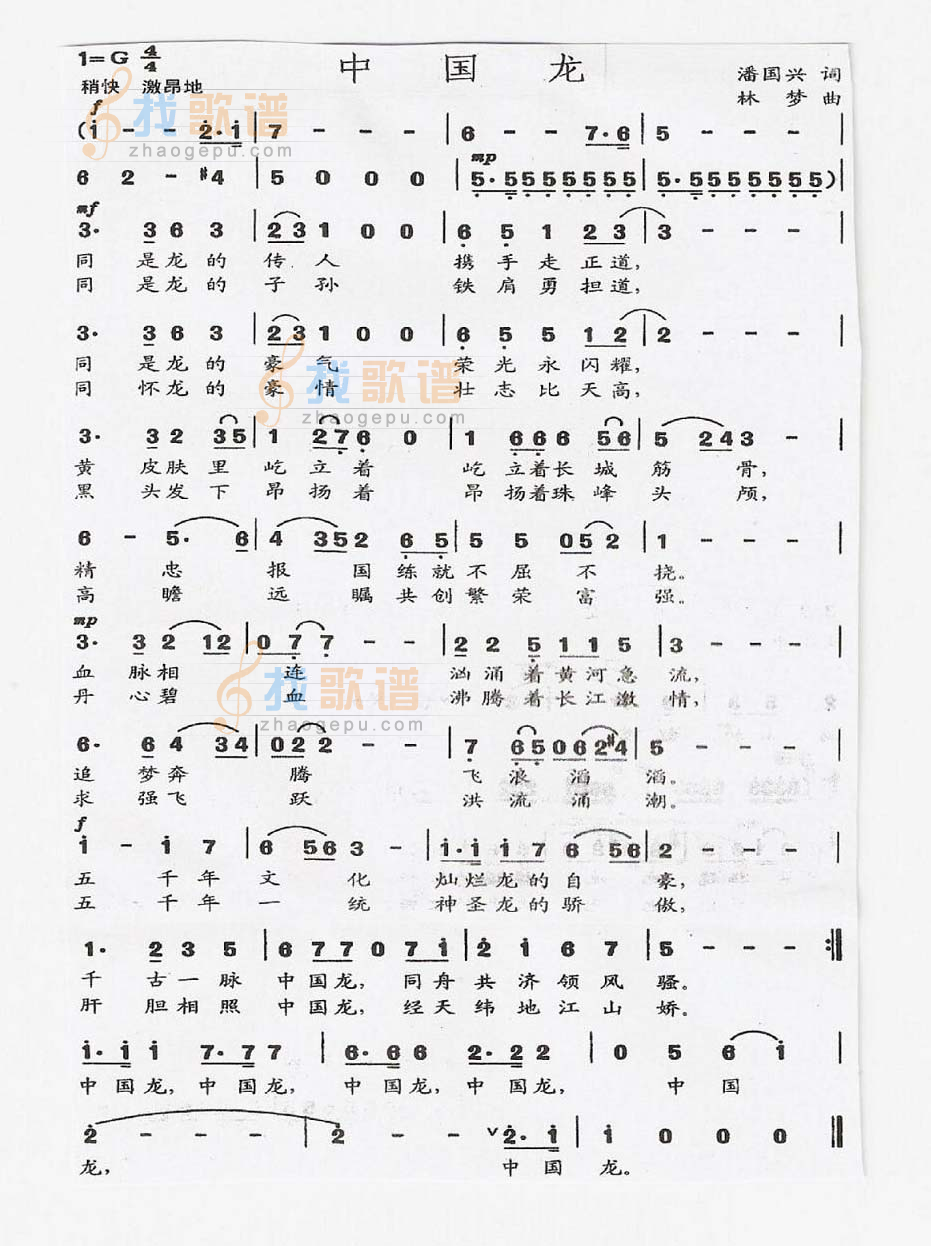 1=G 4/4 中国龙 潘国兴 词
稍快 激昂地 林梦 曲
f
(i - - 2·i | 7 - - - | 6 - - 7·6 | 5 - - - |
mp
6 2 - #4 | 5 0 0 0 | 5·555555555 | 5·555555555) |
mf
3· 3 6 3 | 23 1 0 0 | 6 5 1 23 | 3 - - - |
同 是龙的 传人 携手走正道,
同 是龙的 子孙 铁肩勇担道,
3· 3 6 3 | 23 1 0 0 | 6 5 5 12 | 2 - - - |
同 是龙的 豪气 荣光永闪耀,
同 怀龙的 豪情 壮志比天高,
3· 3 2 35 | 1 27 6 0 | 1 66 6 56 | 5 24 3 - |
黄 皮肤里 屹立着 屹立着长城筋骨,
黑 头发下 昂扬着 昂扬着珠峰头颅,
6 - 5· 6 | 4 35 2 6 5 | 5 5 05 2 | 1 - - - |
精 忠 报 国练就不屈不 挠。
高 瞻 远 瞩共创繁荣富 强。
mp
3· 3 2 12 | 0 7 7 - - | 2 2 5 1 1 5 | 3 - - - |
血 脉相 连 汹涌着黄河急 流,
丹 心碧 血 沸腾着长江激 情,
6· 6 4 34 | 02 2 - - | 7 65 06 2#4 | 5 - - - |
追 梦奔 腾 飞浪滔 滔。
求 强飞 跃 洪流涌 潮。
f
i - i 7 | 6 56 3 - | i·i i 7 6 56 | 2 - - - |
五 千年 文 化 灿烂龙的自 豪,
五 千年 一 统 神圣龙的骄 傲,
1· 2 3 5 | 6 77 0 7i | 2 i 6 7 | 5 - - - :||
千 古一脉 中国龙, 同舟共济领风骚。
肝 胆相照 中国龙, 经天纬地江山娇。
i·i i 7·7 7 | 6·6 6 2·2 2 | 0 5 6 i |
中国龙, 中国龙, 中国龙, 中国龙, 中国
2 - - - | 2 - - ∨2·i | i 0 0 0 ||
龙, 中国龙。
找歌谱
zhaogepu.com
找歌谱
zhaogepu.com
找歌谱
zhaogepu.com